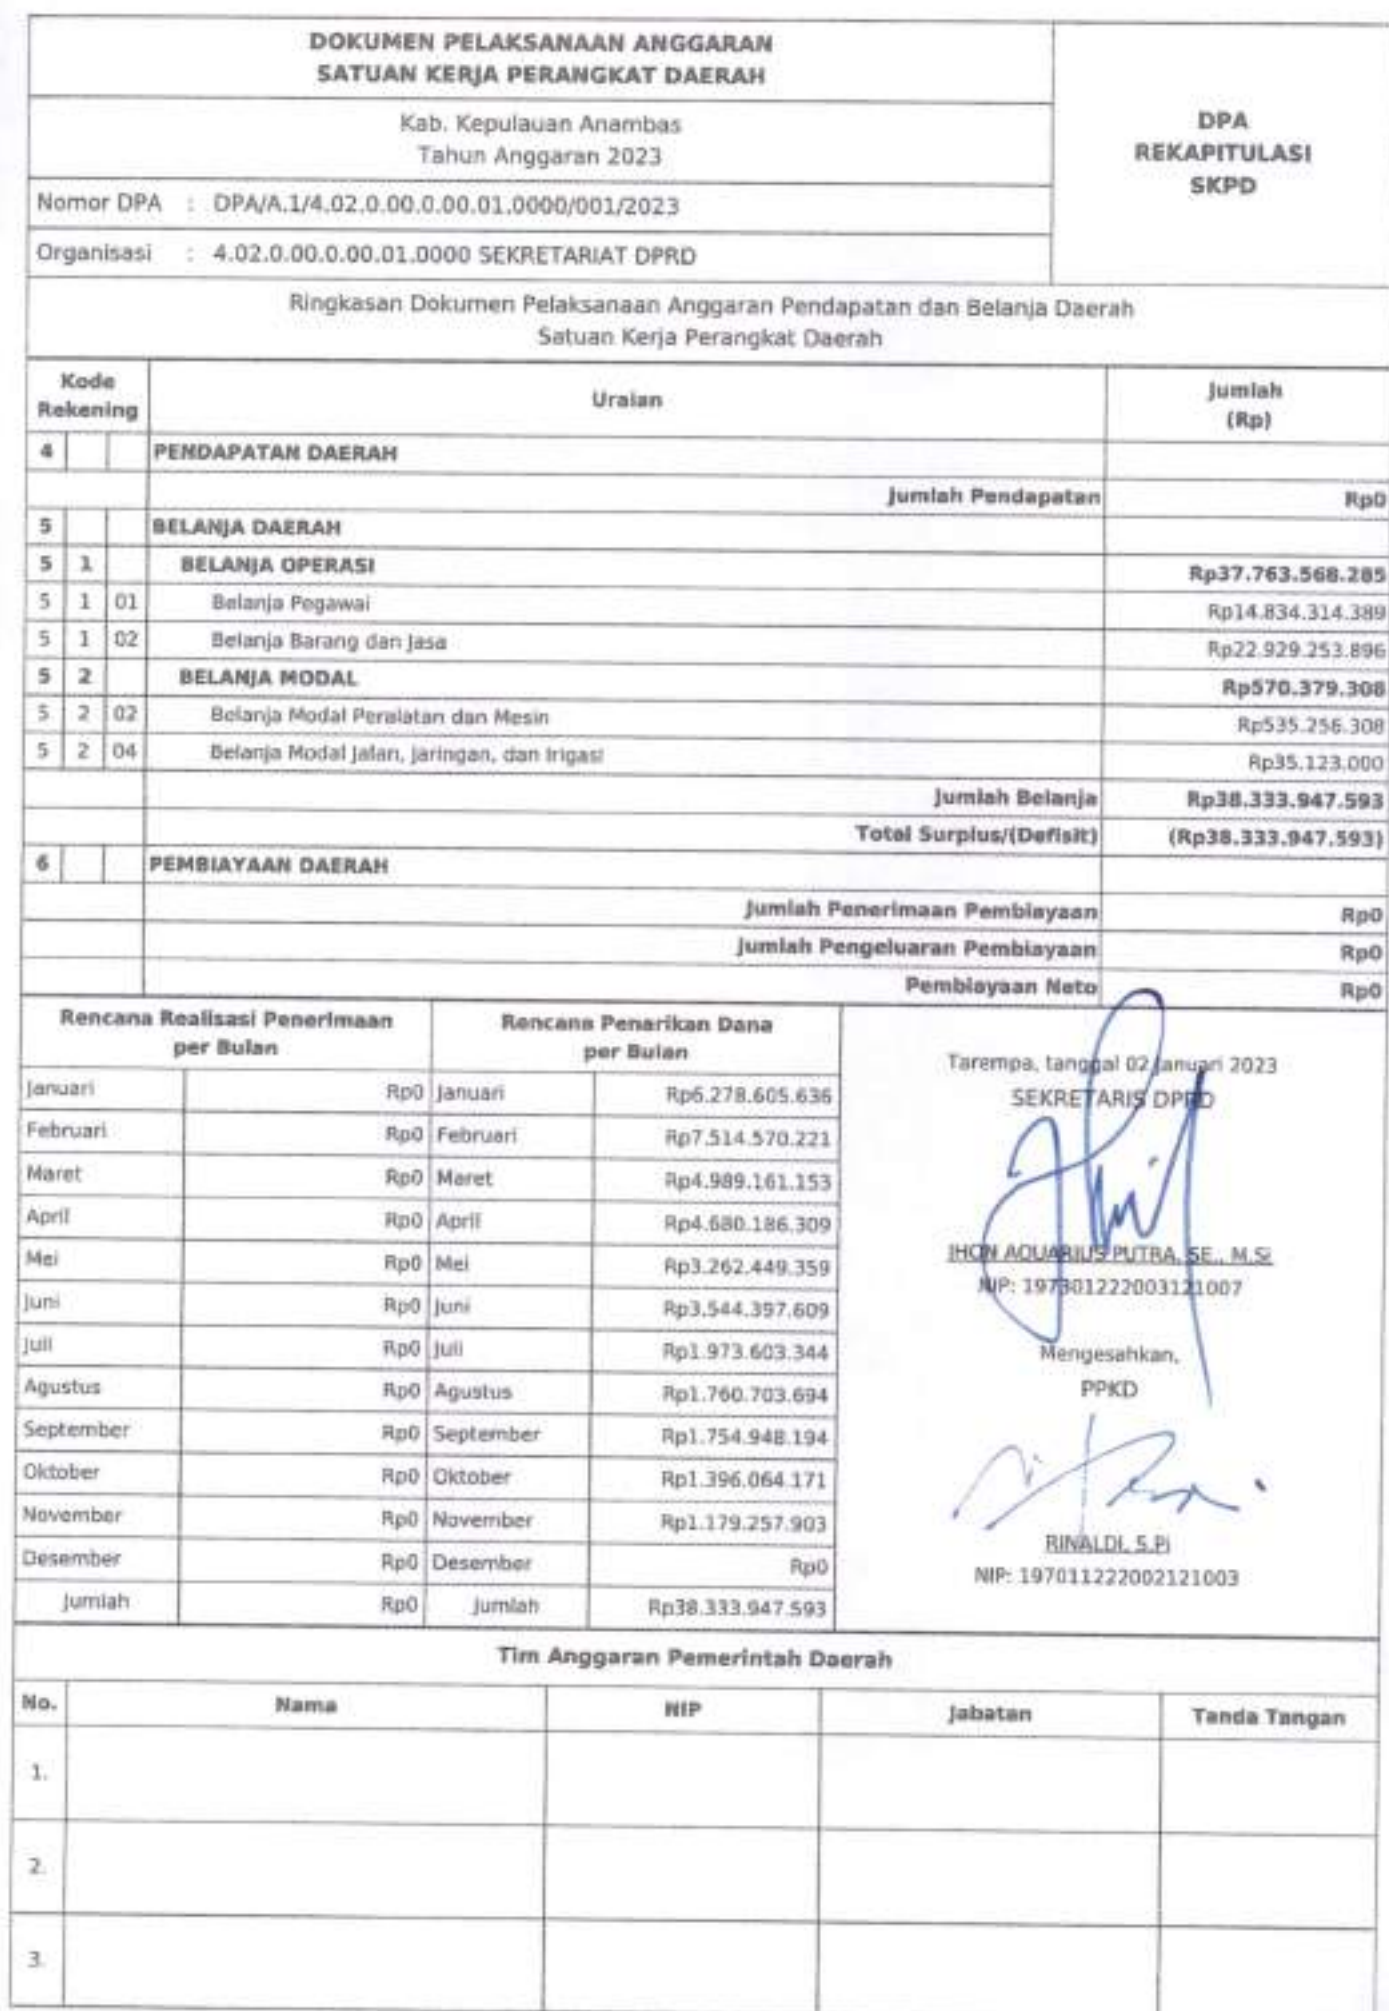 DOKUMEN PELAKSANAAN ANGGARAN
SATUAN KERJA PERANGKAT DAERAH
DPA
REKAPITULASI
SKPD
Kab. Kepulauan Anambas
Tahun Anggaran 2023
Nomor DPA : DPA/A.1/4.02.0.00.0.00.01.0000/001/2023
Organisasi : 4.02.0.00.0.00.01.0000 SEKRETARIAT DPRD
Ringkasan Dokumen Pelaksanaan Anggaran Pendapatan dan Belanja Daerah
Satuan Kerja Perangkat Daerah
Kode Rekening Uraian Jumlah (Rp)
4 PENDAPATAN DAERAH
Jumlah Pendapatan Rp0
5 BELANJA DAERAH
5 1 BELANJA OPERASI Rp37.763.568.285
5 1 01 Belanja Pegawai Rp14.834.314.389
5 1 02 Belanja Barang dan Jasa Rp22.929.253.896
5 2 BELANJA MODAL Rp570.379.308
5 2 02 Belanja Modal Peralatan dan Mesin Rp535.256.308
5 2 04 Belanja Modal Jalan, Jaringan, dan Irigasi Rp35.123.000
Jumlah Belanja Rp38.333.947.593
Total Surplus/(Defisit) (Rp38.333.947.593)
6 PEMBIAYAAN DAERAH
Jumlah Penerimaan Pembiayaan Rp0
Jumlah Pengeluaran Pembiayaan Rp0
Pembiayaan Neto Rp0
Rencana Realisasi Penerimaan per Bulan Rencana Penarikan Dana per Bulan
Januari Rp0 Januari Rp6.278.605.636
Februari Rp0 Februari Rp7.514.570.221
Maret Rp0 Maret Rp4.989.161.153
April Rp0 April Rp4.680.186.309
Mei Rp0 Mei Rp3.262.449.359
Juni Rp0 Juni Rp3.544.397.609
Juli Rp0 Juli Rp1.973.603.344
Agustus Rp0 Agustus Rp1.760.703.694
September Rp0 September Rp1.754.948.194
Oktober Rp0 Oktober Rp1.396.064.171
November Rp0 November Rp1.179.257.903
Desember Rp0 Desember Rp0
Jumlah Rp0 Jumlah Rp38.333.947.593
Tarempa, tanggal 02 Januari 2023
SEKRETARIS DPRD
JHON AQUARIUS PUTRA, SE., M.Si
NIP: 197301222003121007
Mengesahkan,
PPKD
RINALDI, S.Pi
NIP: 197011222002121003
Tim Anggaran Pemerintah Daerah
No. Nama NIP Jabatan Tanda Tangan
1.
2.
3.